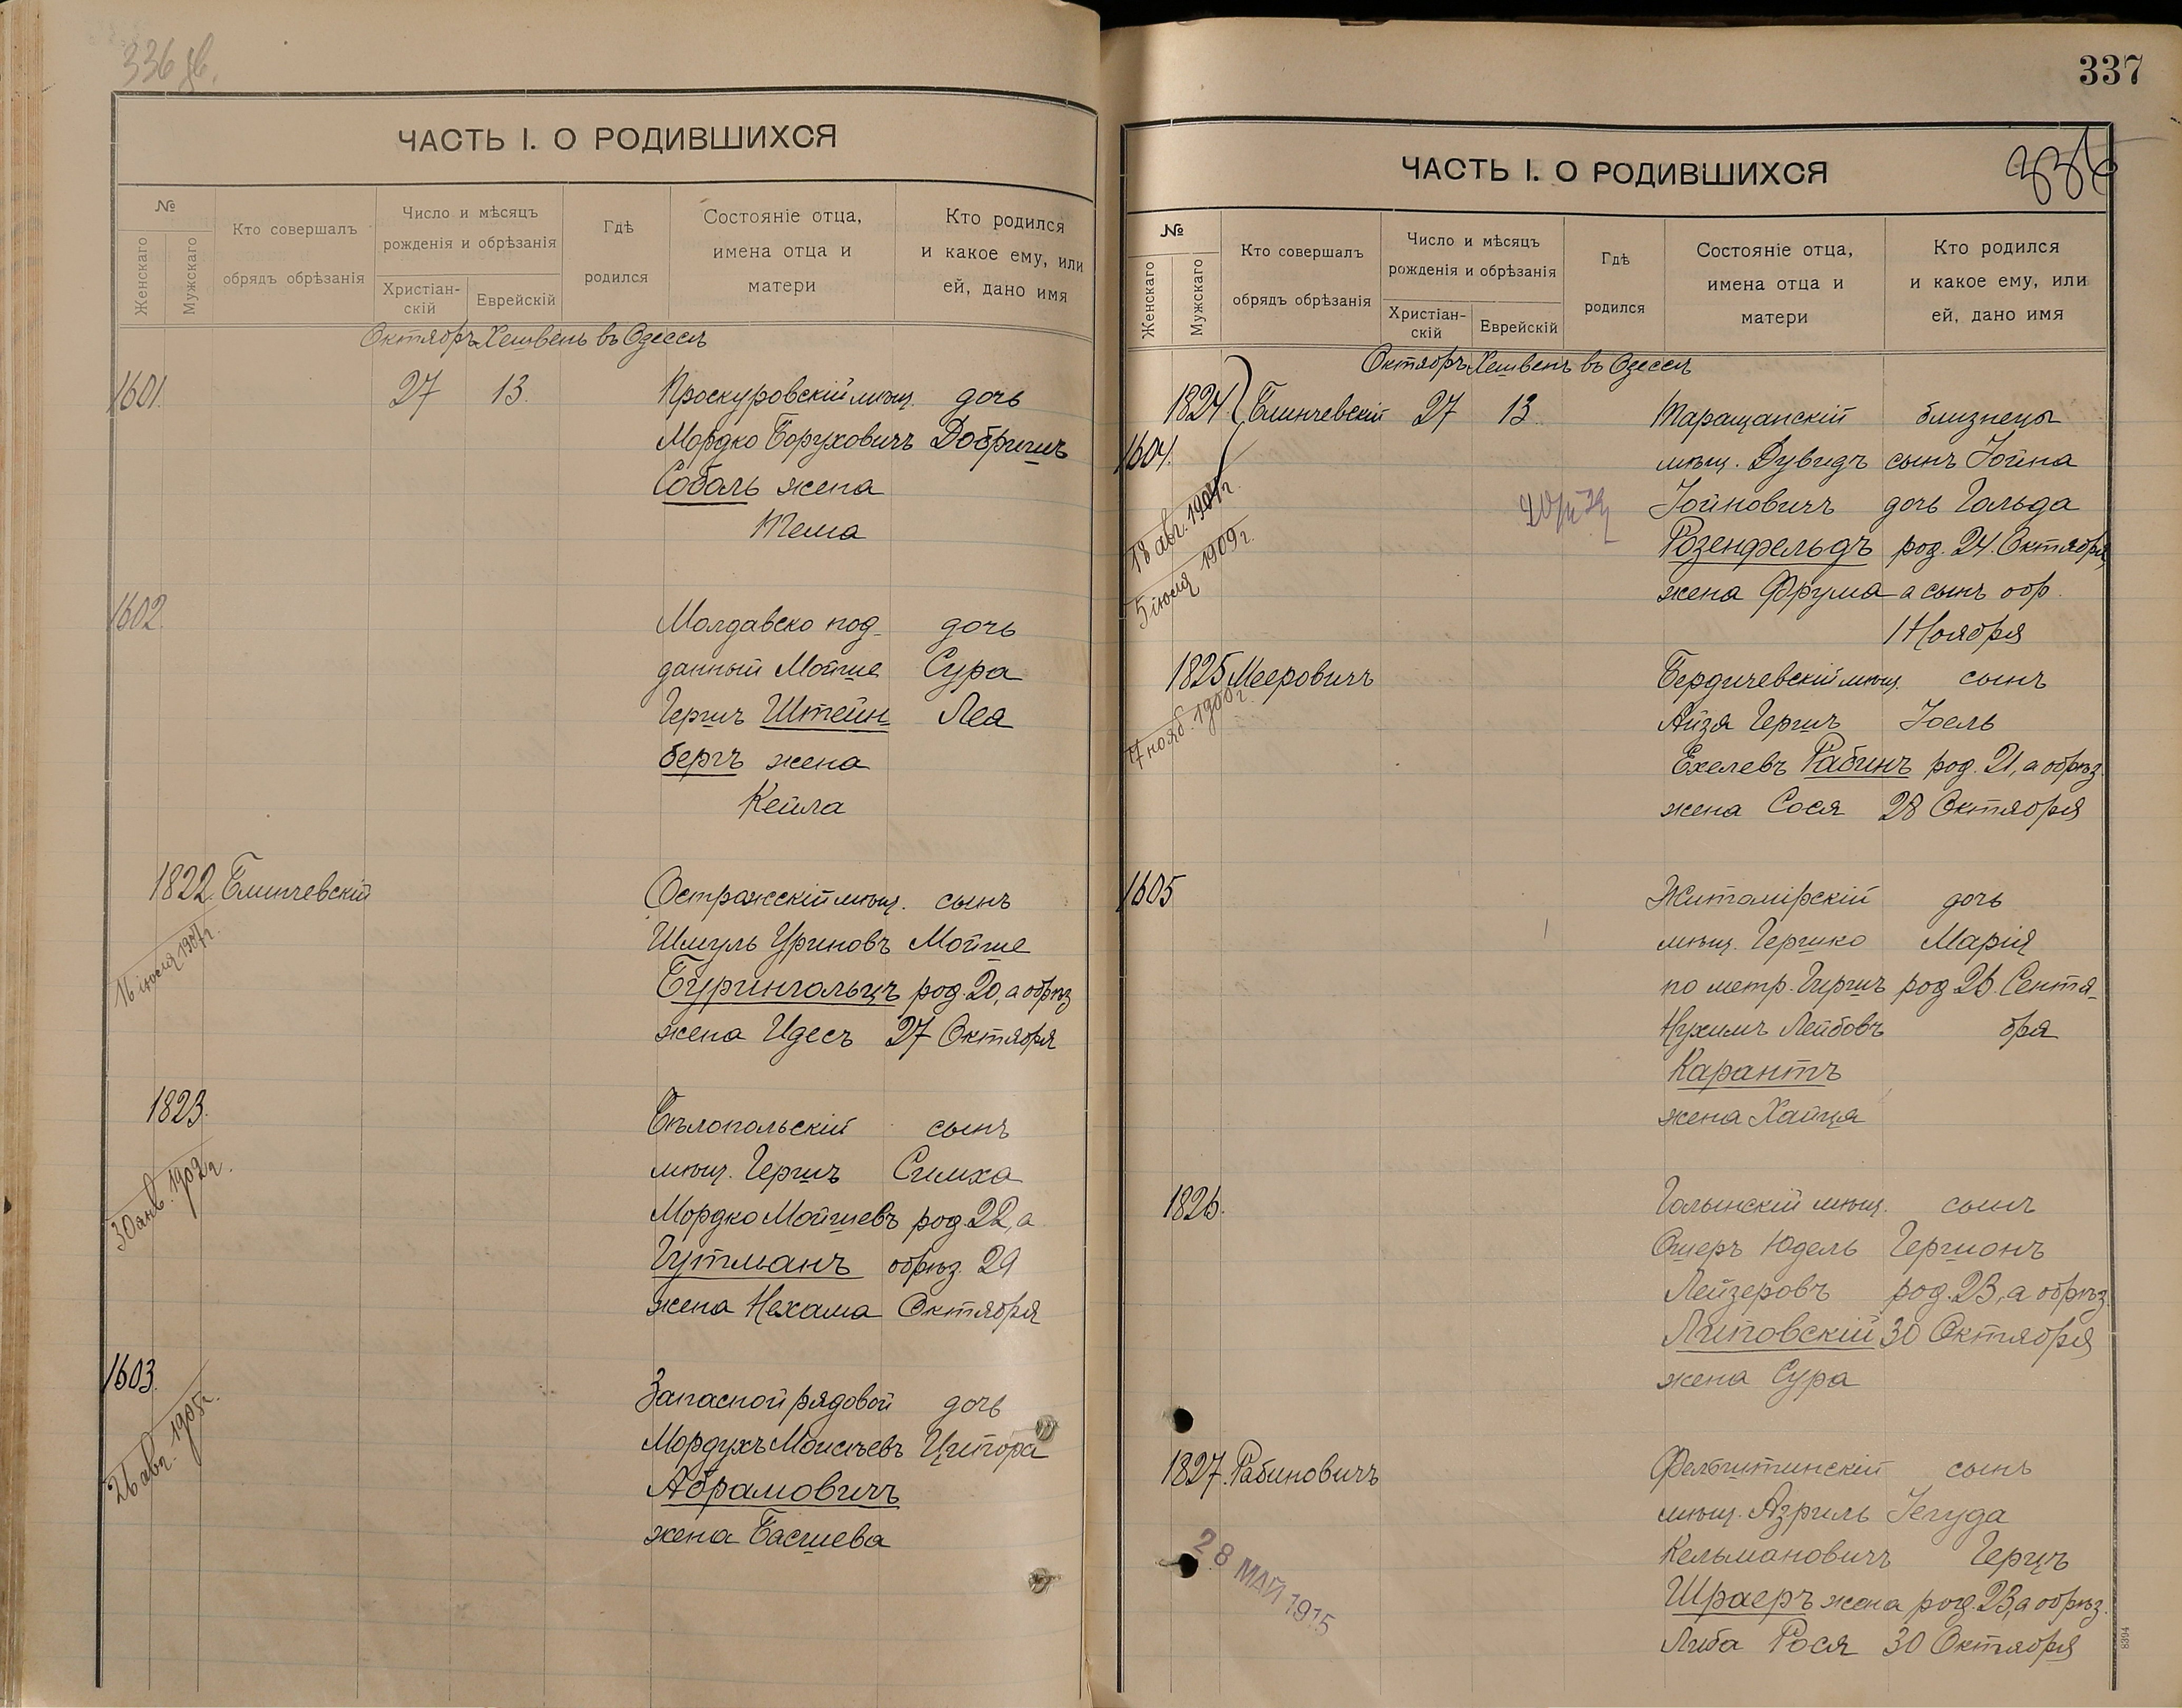 336 об.
ЧАСТЬ I. О РОДИВШИХСЯ
№
Женскаго
Мужскаго
Кто совершалъ
обрядъ обрѣзанія
Число и мѣсяцъ
рожденія и обрѣзанія
Христіан-
скій
Еврейскій
Гдѣ
родился
Состояніе отца,
имена отца и
матери
Кто родился
и какое ему, или
ей, дано имя
Октябрь Хешвенъ въ Одессѣ
1601. 27 13. Проскуровскій мѣщ. дочь
Мордко Боруховичъ Добришъ
Соболь жена
Тема
1602. Молдавско под- дочь
данный Мойше Сура
Гершъ Штейн- Леа
бергъ жена
Кейла
1822. Блинчевскій Острожскій мѣщ. сынъ
16 іюля 1907г.
Шмуль Уриновъ Мойше
Бурингольцъ род. 20, а обрѣз
жена Идесъ 27 Октября
1823. Бѣлопольскій сынъ
30 янв. 1902г.
мѣщ. Гершъ Симха
Мордко Мойшевъ род. 22, а
Гутманъ обрѣз. 29
жена Нехама Октября
1603. Запасной рядовой дочь
26 авг. 1905г.
Мордухъ Моисѣевъ Ципора
Абрамовичъ
жена Басшева
337
ЧАСТЬ I. О РОДИВШИХСЯ
№
Женскаго
Мужскаго
Кто совершалъ
обрядъ обрѣзанія
Число и мѣсяцъ
рожденія и обрѣзанія
Христіан-
скій
Еврейскій
Гдѣ
родился
Состояніе отца,
имена отца и
матери
Кто родился
и какое ему, или
ей, дано имя
Октябрь Хешвенъ въ Одессѣ
1824. Блинчевскій 27 13. Таращанскій близнецы
1604. мѣщ. Дувидъ сынъ Іойна
18 авг. 1904г.
Іойновичъ дочь Гольда
5 іюля 1909г.
Розенфельдъ род. 24. Октября,
жена Фрума а сынъ обр.
1 Ноября
1825 Мееровичъ Бердичевскій мѣщ. сынъ
17 нояб. 1900г.
Айзя Гершъ Іоель
Ехелевъ Рабинъ род. 21, а обрѣз.
жена Сося 28 Октября
1605 Житомірскій дочь
мѣщ. Гершко Марія
по метр. Гиршъ род 26. Сентя-
Нухимъ Лейбовъ бря
Карантъ
жена Хайця
1826. Голынскій мѣщ. сынъ
Ошеръ Юдель Гершонъ
Лейзеровъ род. 23, а обрѣз.
Липовскій 30 Октября
жена Сура
1827. Рабиновичъ Фельштинскій сынъ
мѣщ. Азриль Іегуда
Кельмановичъ Герцъ
Шраеръ жена род. 23, а обрѣз.
Либа Рося 30 Октября
28 МАЙ 1915
8394